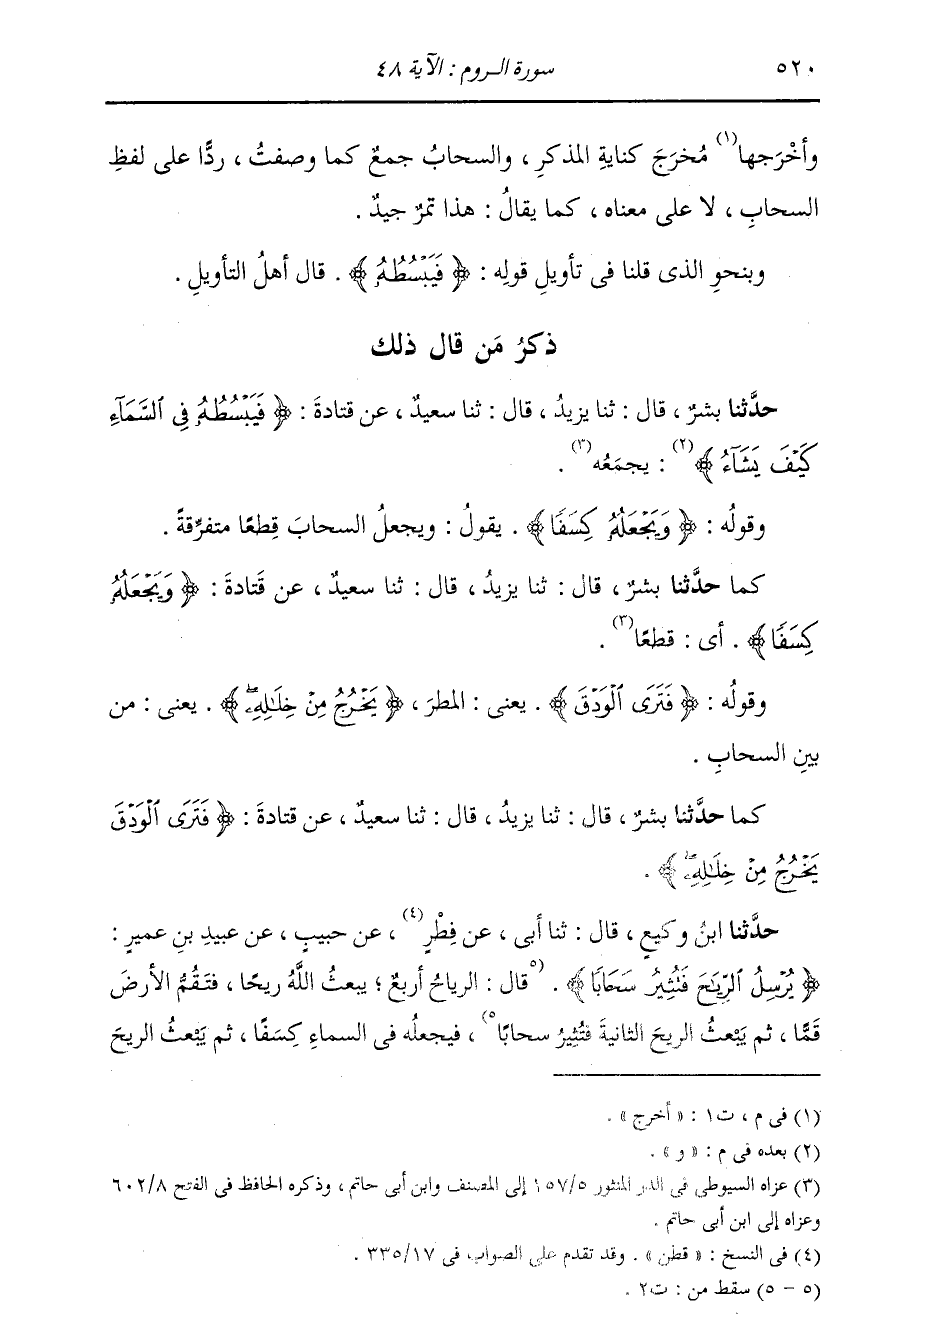 ٥٢٠ سورة الروم : الآية ٤٨
وأخْرَجها(١) مُخرَجَ كنايةِ المذكرِ ، والسحابُ جمعٌ كما وصفتُ ، ردًّا على لفظِ
السحابِ ، لا على معناه ، كما يقالُ : هذا تمرٌ جيدٌ .
وبنحوِ الذى قلنا فى تأويلِ قولِه : ﴿ فَيَبْسُطُهُ ﴾ . قال أهلُ التأويلِ .
ذكرُ مَن قال ذلك
حدَّثنا بشرٌ ، قال : ثنا يزيدُ ، قال : ثنا سعيدٌ ، عن قتادةَ : ﴿ فَيَبْسُطُهُ فِى ٱلسَّمَآءِ
كَيْفَ يَشَآءُ ﴾(٢) : يجمَعُه(٣) .
وقولُه : ﴿ وَيَجْعَلُهُ كِسَفًا ﴾ . يقولُ : ويجعلُ السحابَ قِطعًا متفرِّقةً .
كما حدَّثنا بشرٌ ، قال : ثنا يزيدُ ، قال : ثنا سعيدٌ ، عن قَتادةَ : ﴿ وَيَجْعَلُهُ
كِسَفًا ﴾ . أى : قطعًا(٣) .
وقولُه : ﴿ فَتَرَى ٱلْوَدْقَ ﴾ . يعنى : المطرَ ، ﴿ يَخْرُجُ مِنْ خِلَٰلِهِۦۖ ﴾ . يعنى : من
بينِ السحابِ .
كما حدَّثنا بشرٌ ، قال : ثنا يزيدُ ، قال : ثنا سعيدٌ ، عن قتادةَ : ﴿ فَتَرَى ٱلْوَدْقَ
يَخْرُجُ مِنْ خِلَٰلِهِۦۖ ﴾ .
حدَّثنا ابنُ وكيعٍ ، قال : ثنا أبى ، عن فِطْرٍ(٤) ، عن حبيبٍ ، عن عبيدِ بنِ عميرٍ :
﴿ يُرْسِلُ ٱلرِّيَٰحَ فَتُثِيرُ سَحَابًا ﴾ . (٥قال : الرياحُ أربعٌ ؛ يبعثُ اللَّهُ ريحًا ، فتَقُمُّ الأرضَ
قَمًّا ، ثم يَبْعثُ الريحَ الثانيةَ فتُثِيرُ سحابًا٥) ، فيجعلُه فى السماءِ كِسَفًا ، ثم يَبْعثُ الريحَ
(١) فى م ، ت١ : « أخرج » .
(٢) بعده فى م : « و » .
(٣) عزاه السيوطى فى الدر المنثور ١٥٧/٥ إلى المصنف وابن أبى حاتم ، وذكره الحافظ فى الفتح ٦٠٢/٨
وعزاه إلى ابن أبى حاتم .
(٤) فى النسخ : « قطن » . وقد تقدم على الصواب فى ٣٣٥/١٧ .
(٥ - ٥) سقط من : ت٢ .